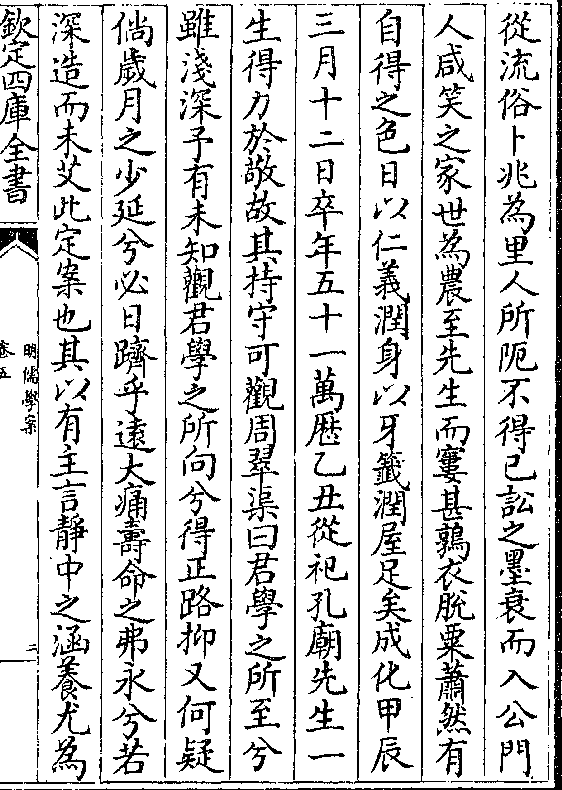 從流俗卜兆為里人所阨不得已訟之墨衰而入公門
人咸笑之家世為農至先生而窶甚鶉衣脫粟蕭然有
自得之色曰以仁義潤身以牙籤潤屋足矣成化甲辰
三月十二日卒年五十一萬厯乙丑從祀孔廟先生一
生得力於敬故其持守可觀周翠渠曰君學之所至兮
雖淺深予有未知觀君學之所向兮得正路抑又何疑
倘歲月之少延兮必日躋乎遠大痛壽命之弗永兮若
深造而未艾此定案也其以有主言靜中之涵養尤為
欽定四庫全書
明儒學案
卷五
三